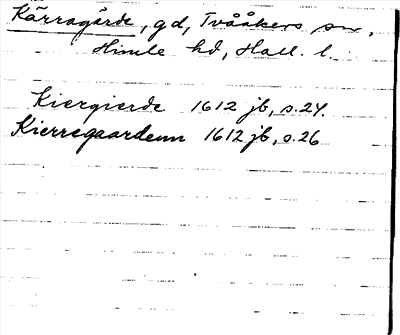 Kärragärde, gd, Tvååkers sn,
Himle hd, Hall. l.
Kiergierde 1612 jb, s.24.
Kierregaardenn 1612 jb, s.26